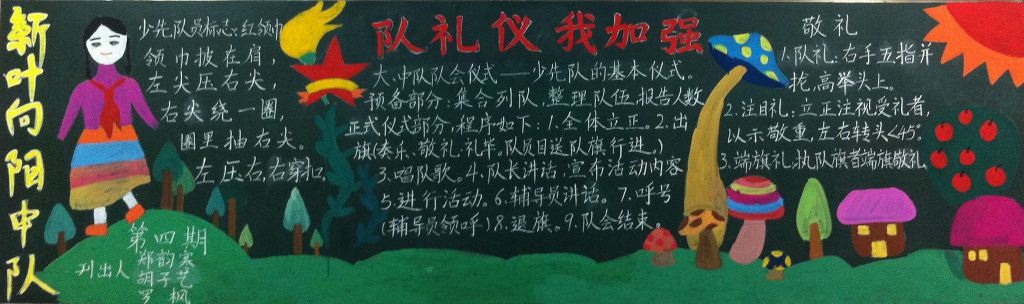 新叶向阳中队
少先队员标志:红领巾
领巾披在肩,
左尖压右尖,
右尖绕一圈,
圈里抽右尖。
左压右,右穿扣
第四期
刊出人
郑韵实
胡子艺
罗枫
队礼仪我加强
大、中队队会仪式——少先队的基本仪式。
预备部分:集合列队,整理队伍,报告人数
正式仪式部分,程序如下:1.全体立正。2.出
旗(奏乐、敬礼、礼毕。队员目送队旗行进。)
3.唱队歌。4.队长讲话、宣布活动内容
5.进行活动。6.辅导员讲话。7.呼号
(辅导员领呼)8.退旗。9.队会结束。
敬礼
1.队礼:右手五指并
拢,高举头上。
2.注目礼:立正注视受礼者,
以示敬重,左右转头<45°
3.端旗礼,执队旗者端旗敬礼